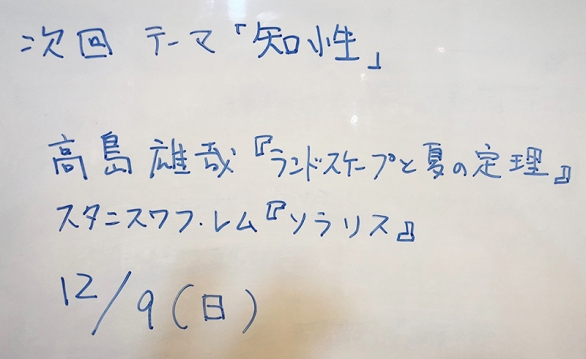 次回 テーマ「知性」
高島雄哉『ランドスケープと夏の定理』
スタニスワフ・レム『ソラリス』
12/9(日)